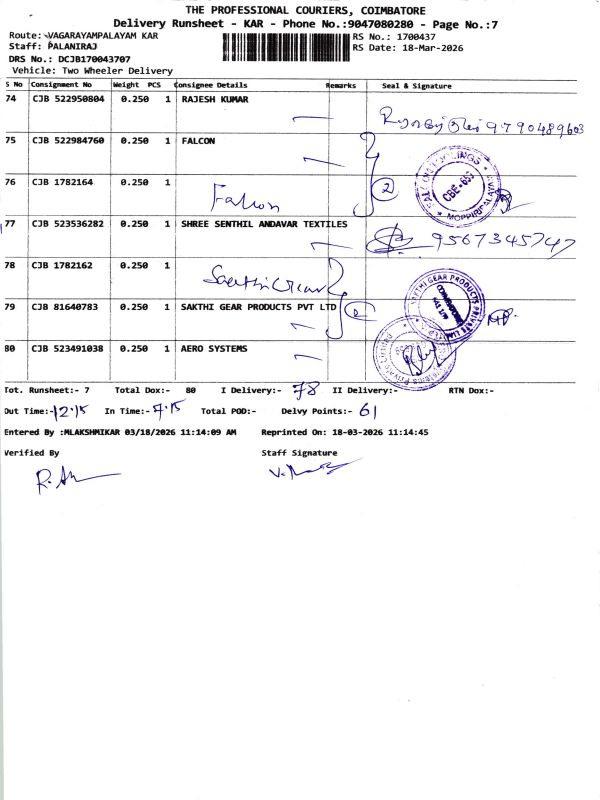 THE PROFESSIONAL COURIERS, COIMBATORE
Delivery Runsheet - KAR - Phone No.:9047080280 - Page No.:7
Route: VAGARAYAMPALAYAM KAR
RS No.: 1700437
Staff: PALANIRAJ
RS Date: 18-Mar-2026
DRS No.: DCJB170043707
Vehicle: Two Wheeler Delivery
S No Consignment No Weight PCS Consignee Details Remarks Seal & Signature
74 CJB 522950804 0.250 1 RAJESH KUMAR
9790489603
75 CJB 522984760 0.250 1 FALCON
76 CJB 1782164 0.250 1
Falcon 2
CBE-659
MOPPIRIPALAYAM
77 CJB 523536282 0.250 1 SHREE SENTHIL ANDAVAR TEXTILES
9567345747
78 CJB 1782162 0.250 1
Sakthi Gear
79 CJB 81640783 0.250 1 SAKTHI GEAR PRODUCTS PVT LTD
SAKTHI GEAR PRODUCTS PRIVATE LIMITED
80 CJB 523491038 0.250 1 AERO SYSTEMS
Tot. Runsheet:- 7 Total Dox:- 80 I Delivery:- 78 II Delivery:- RTN Dox:-
Out Time:- 12.15 In Time:- 7.15 Total POD:- Delvy Points:- 61
Entered By :MLAKSHMIKAR 03/18/2026 11:14:09 AM Reprinted On: 18-03-2026 11:14:45
Verified By Staff Signature